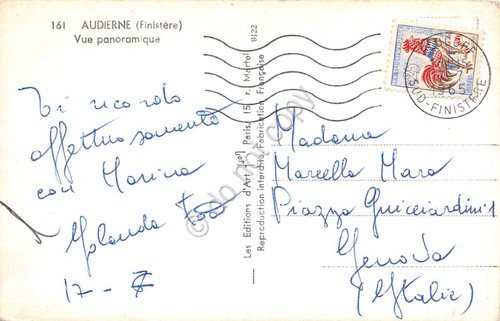 161 AUDIERNE (Finistère)
Vue panoramique
9122
Ti ricordo
affettuosamente
con Marina
Yolanda
17 - 7
Les Editions d'Art "Jo" Paris, 15, r. Martel
Reproduction interdite Fabrication Française
SUD-FINISTERE
1965
Madame
Marcella Mara
Piazza Guicciardini 5
Genova
(Italie)
do not copy